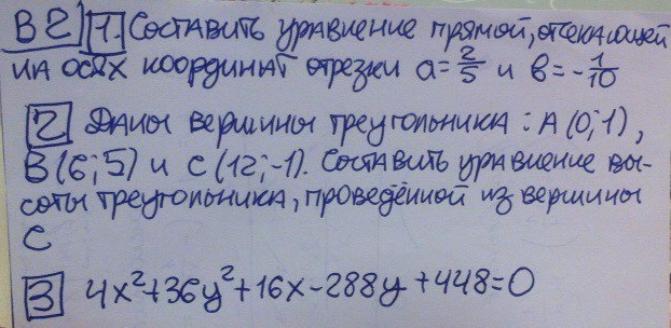 В2 1. Составить уравнение прямой, отсекающей
на осях координат отрезки a=2/5 и в=-1/10
2 Даны вершины треугольника: A(0;1),
B(6;5) и С(12;-1). Составить уравнение вы-
соты треугольника, проведённой из вершины
С
3 4x²+36y²+16x-288y+448=0